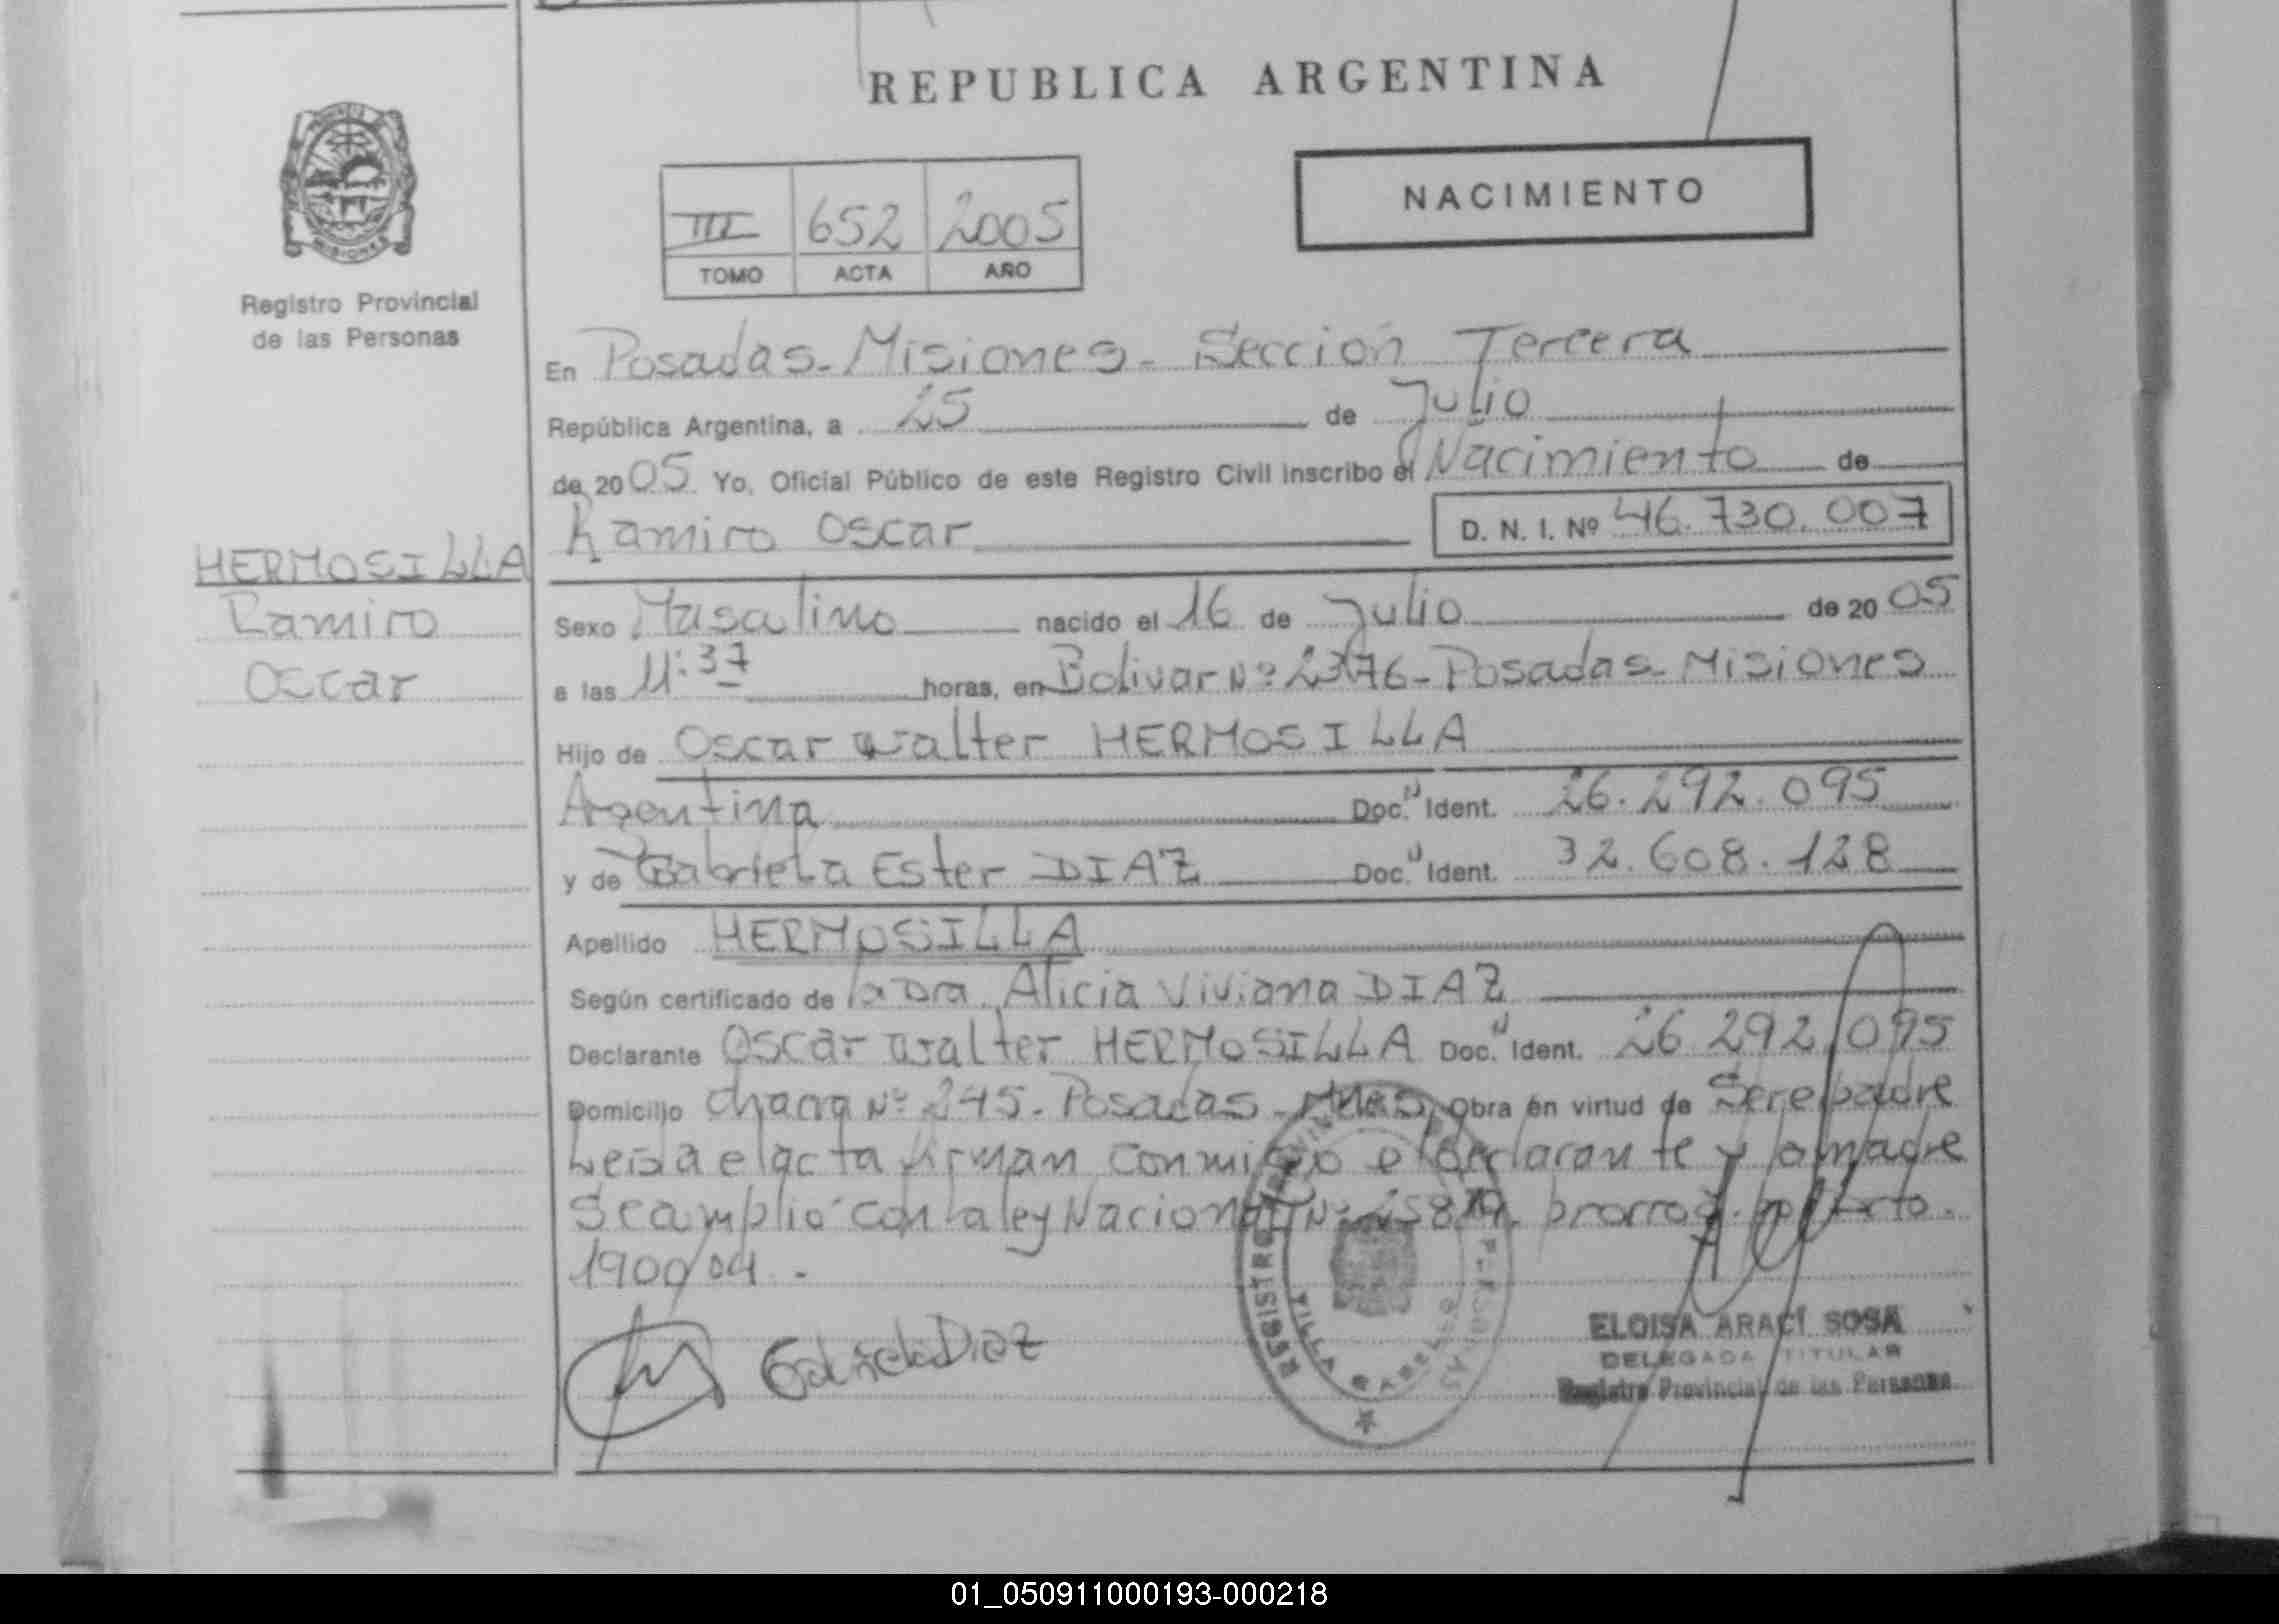 REPUBLICA ARGENTINA
NACIMIENTO
III 652 2005
TOMO ACTA AÑO
MISIONES
Registro Provincial
de las Personas
En Posadas-Misiones-Sección Tercera
República Argentina, a 25 de Julio
de 2005 Yo, Oficial Público de este Registro Civil inscribo el Nacimiento de
Ramiro Oscar D. N. I. Nº 46.730.007
HERMOSILLA
Ramiro
Oscar
Sexo Masculino nacido el 16 de Julio de 2005
a las 11:37 horas, en Bolivar Nº 2376-Posadas-Misiones
Hijo de Oscar Walter HERMOSILLA
Argentina Doc. N Ident. 26.292.095
y de Gabriela Ester DIAZ Doc. N Ident. 32.608.128
Apellido HERMOSILLA
Según certificado de la Dra Alicia Viviana DIAZ
Declarante Oscar Walter HERMOSILLA Doc. N Ident. 26.292.095
Domicilio chacra Nº 245-Posadas-Mnes, Obra en virtud de Ser el padre
Leida el acta firman conmigo el declarante y la madre
Se amplió con la ley Nacional Nº 25819. prorrog. Dto.
1900/04.-
Gabriela Diaz
REGISTRO
VILLA CABELLO
ELOISA ARACÍ SOSA
DELEGADA TITULAR
Registro Provincial de las Personas
01_050911000193-000218